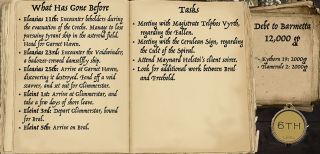 What Has Gone Before
• Eleasias 11th: Encounter beholders during the
evacuation of the Crecke. Manage to lose
pursuing tyrant ship in the asteroid field.
Head for Garnet Haven.
• Eleasias 23rd: Encounter the Voidminder, a
balhazar-crewed damselfly ship.
• Eleasias 25th: Arrive at Garnet Haven,
discovering it destroyed. Fend off a void
scavver, and set out for Glimmerstar.
• Eleint 1st: Arrive at Glimmerstar, and take
a few days of shore leave.
• Eleint 3rd: Depart Glimmerstar, bound
for Bral.
• Eleint 5th: Arrive on Bral.
Tasks
• Meeting with Magistrate Telphos Vyrth,
regarding the Vallejos.
• Meeting with the Cerulean Sign, regarding
the Cult of the Spiral.
• Attend Maynard Helseti's client soiree.
• Look for additional work between Bral
and Freehold.
Debt to Barmetta
12,000 gp
6TH